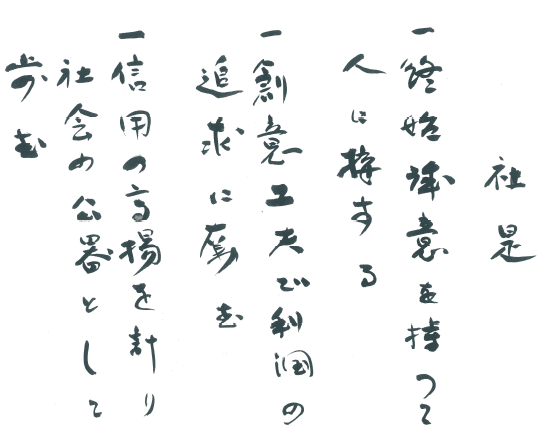 社是
一終始誠意を持つて
人に接する
一創意工夫で利潤の
追求に励む
一信用の高揚を計り
社会の公器として
歩む